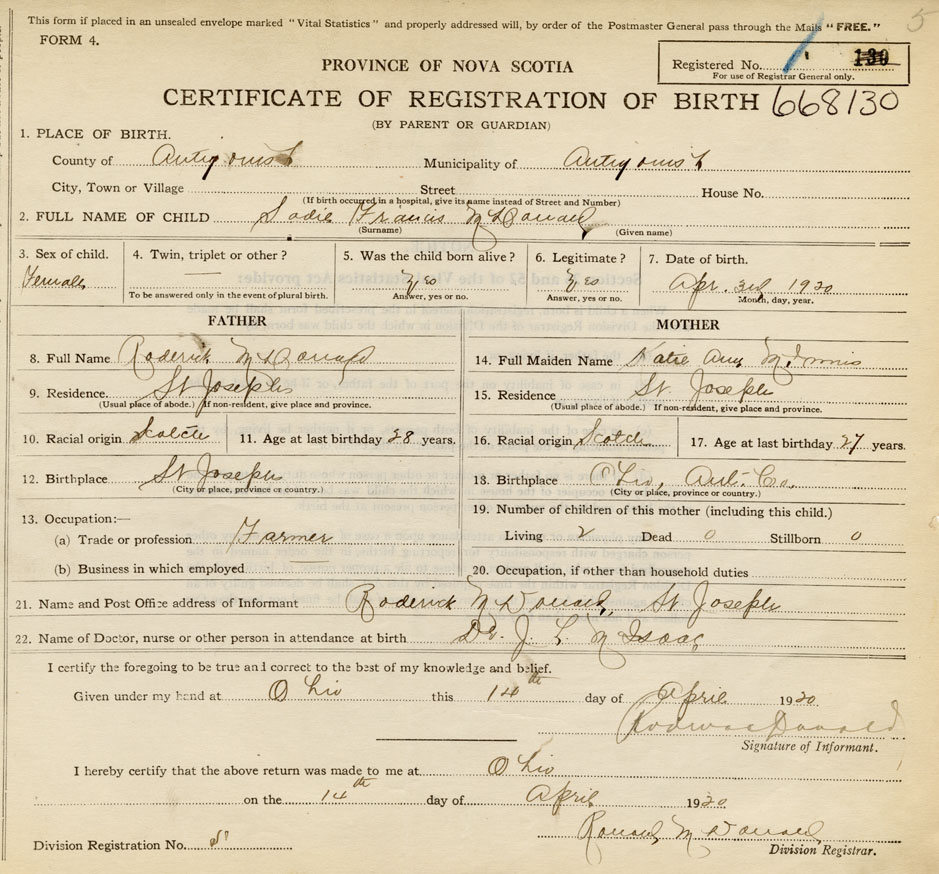 This form if placed in an unsealed envelope marked "Vital Statistics" and properly addressed will, by order of the Postmaster General pass through the Mails "FREE." 5
FORM 4.
Registered No. 130
For use of Registrar General only.
PROVINCE OF NOVA SCOTIA
CERTIFICATE OF REGISTRATION OF BIRTH 668130
(BY PARENT OR GUARDIAN)
1. PLACE OF BIRTH.
County of Antigonish Municipality of Antigonish
City, Town or Village Street House No.
(If birth occurred in a hospital, give its name instead of Street and Number)
2. FULL NAME OF CHILD Sadie Francis McDonald
(Surname) (Given name)
3. Sex of child. Female
4. Twin, triplet or other? —
To be answered only in the event of plural birth.
5. Was the child born alive? Yes
Answer, yes or no.
6. Legitimate? Yes
Answer, yes or no.
7. Date of birth.
Apr. 3rd 1920
Month, day, year.
FATHER
8. Full Name Roderick McDonald
9. Residence. St Josephs
(Usual place of abode.) If non-resident, give place and province.
10. Racial origin Scotch 11. Age at last birthday 28 years.
12. Birthplace St Josephs
(City or place, province or country.)
13. Occupation:—
(a) Trade or profession Farmer
(b) Business in which employed —
MOTHER
14. Full Maiden Name Katie Ann McInnis
15. Residence St Josephs
(Usual place of abode.) If non-resident, give place and province.
16. Racial origin Scotch 17. Age at last birthday 27 years.
18. Birthplace Ohio, Ant. Co.
(City or place, province or country.)
19. Number of children of this mother (including this child.)
Living 2 Dead 0 Stillborn 0
20. Occupation, if other than household duties
21. Name and Post Office address of Informant Roderick McDonald, St Josephs
22. Name of Doctor, nurse or other person in attendance at birth Dr. J. L. McIsaac
I certify the foregoing to be true and correct to the best of my knowledge and belief.
Given under my hand at Ohio this 14th day of April 1920
Signature of Informant.
I hereby certify that the above return was made to me at Ohio
on the 14th day of April 1920
Ronald McDonald
Division Registration No. Division Registrar.